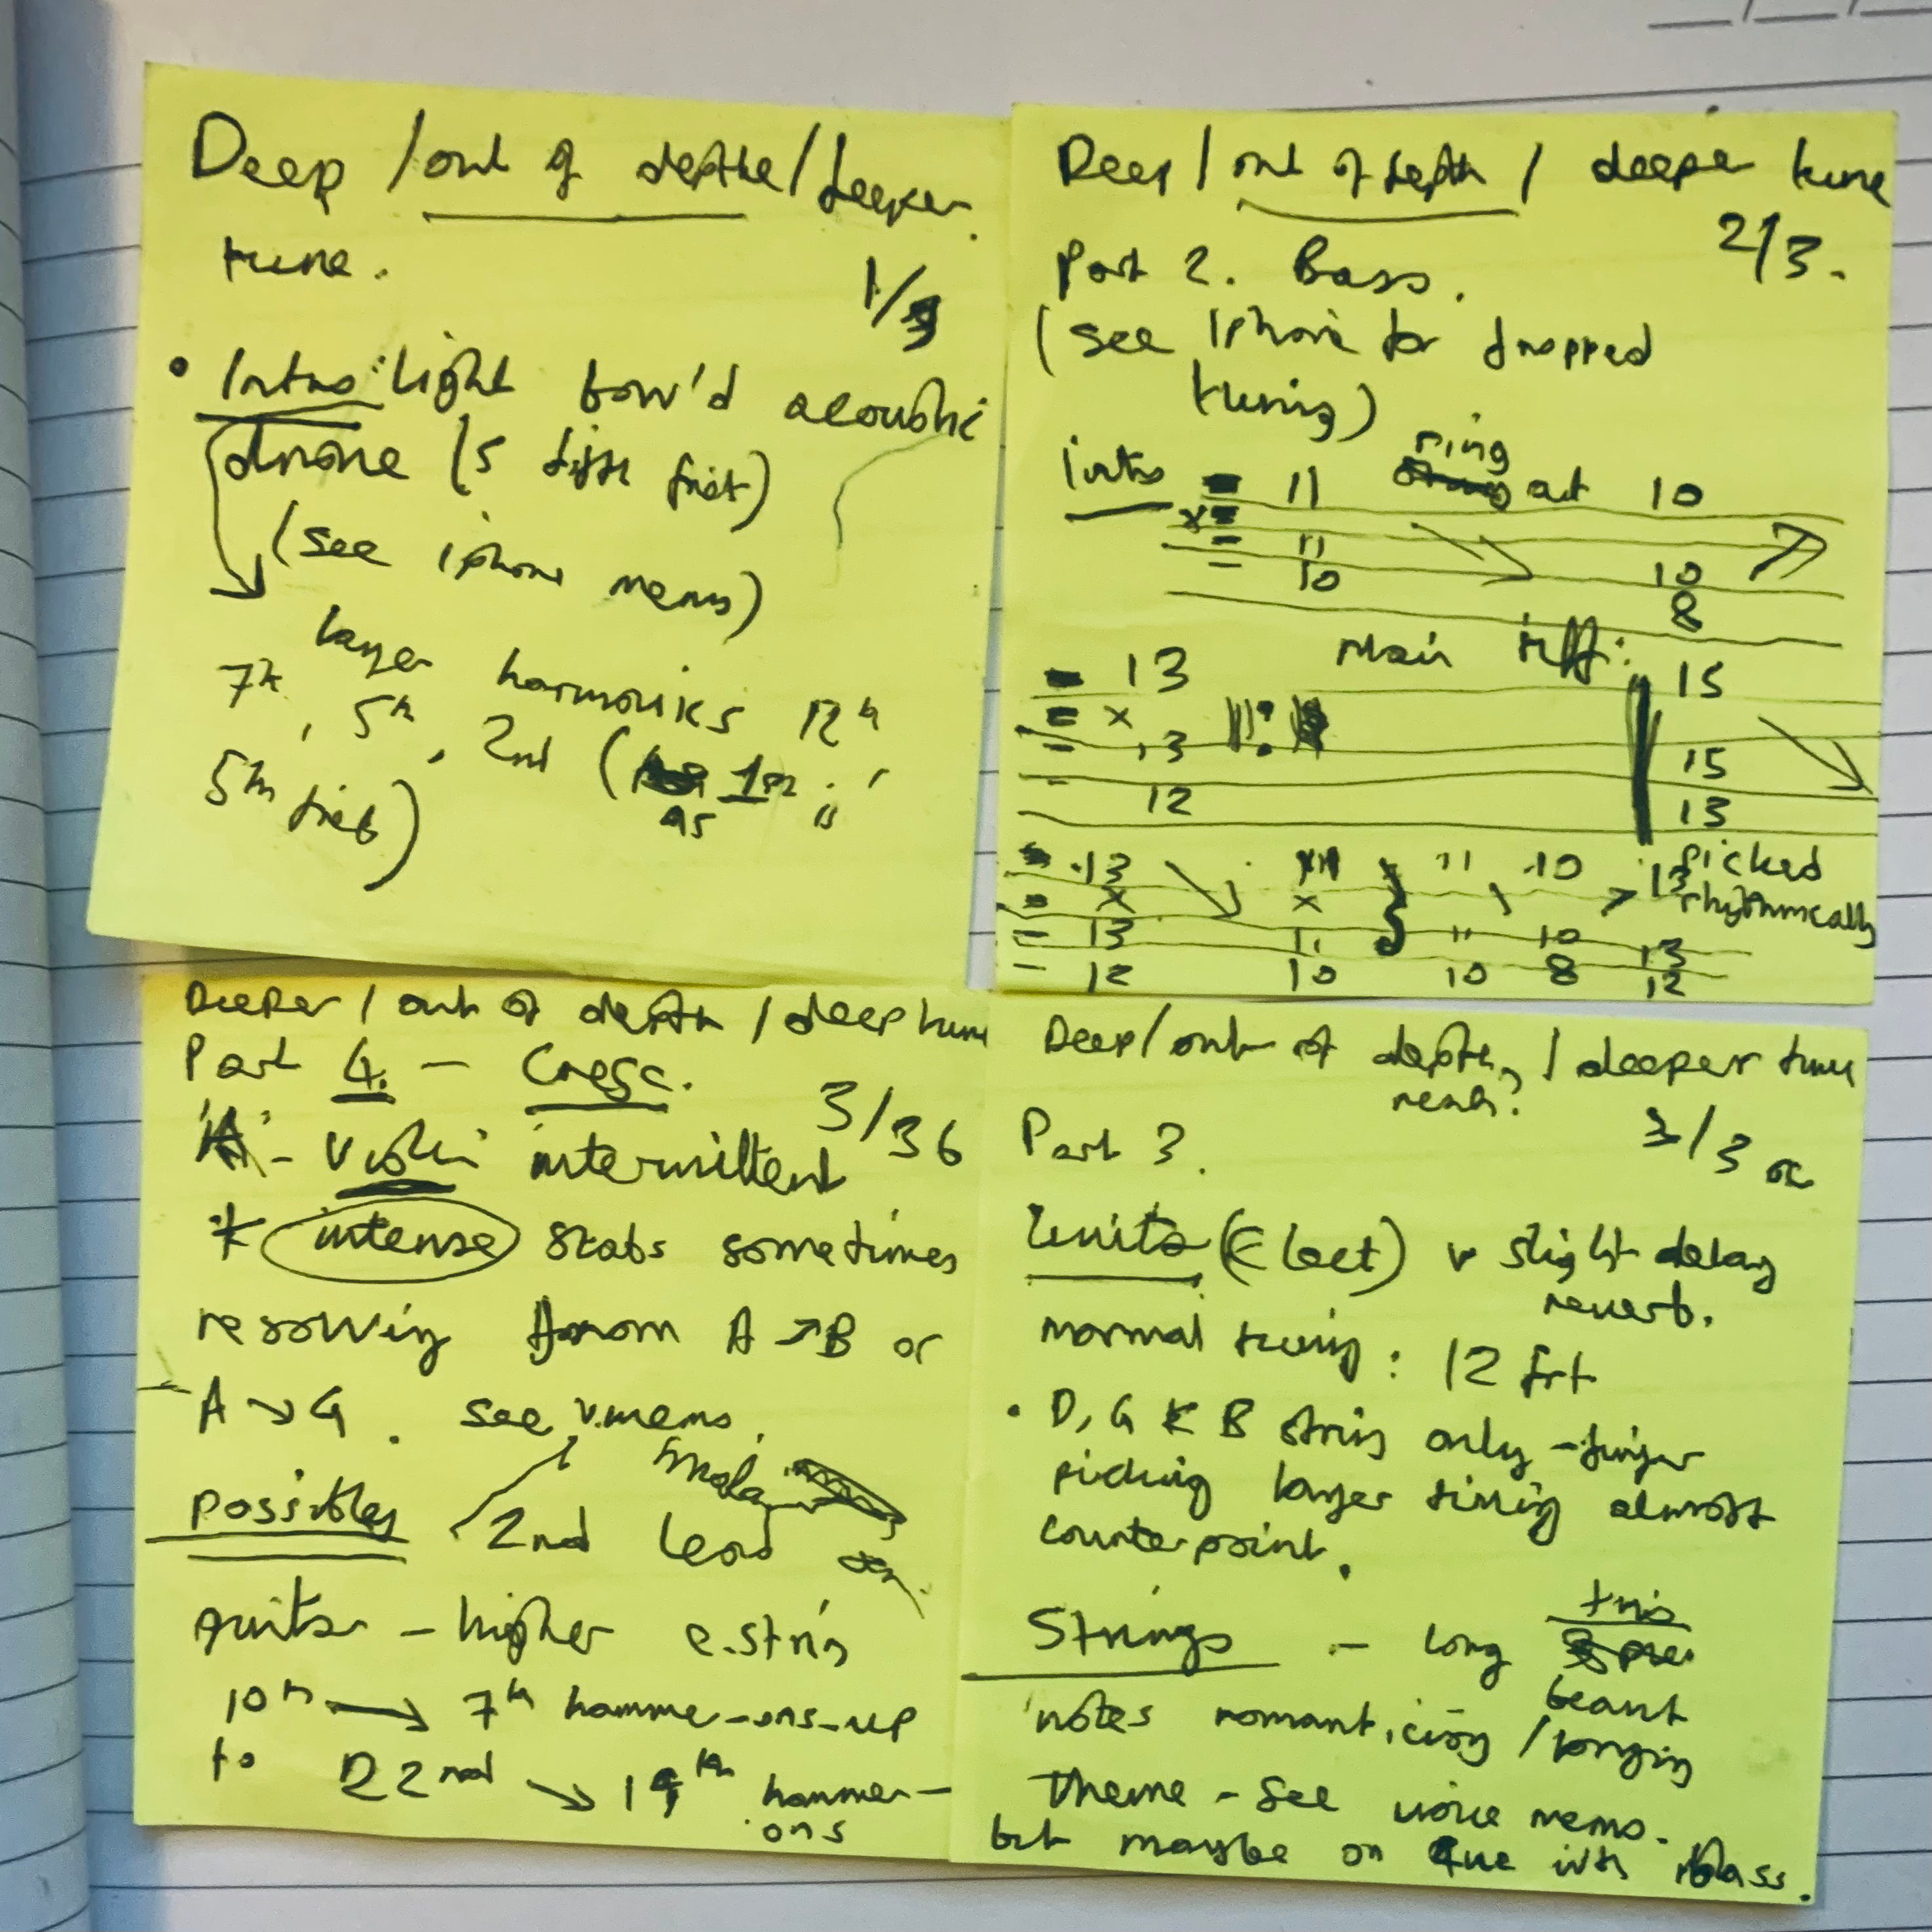 Deep / out of depth / deeper
tune.
1/3
• Intro: light bow'd acoustic
drone (5 diff fret)
(see iphone mems)
layer harmonics 12th
7th, 5th, 2nd (as 1st ;
5th fret)
Deep / out of depth / deeper tune
2/3.
Part 2. Bass.
(see iphone for dropped
tuning)
ring
Intro 11 out 10
x
11 10
10 8
Main riff:
13 15
x
13 15
12 13
13 11 11 10 13 picked
x x rhythmically
13 11 11 10 13
12 10 10 8 12
Deeper / out of depth / deep tune
Part 4. - Cresc.
3/3 b
'A' - Violin intermittent
* intense stabs sometimes
resolving from A ↗ B or
A ↘ G. see v.mems.
possibly 2nd lead
guitar - higher e.string
10th → 7th hammer-ons-up
to 22nd ↘ 19th hammer-
ons
Deep / out of depth / deeper tune
Part 3.
3/3 a
(Elect) v slight delay
reverb.
normal tuning: 12 frt
• D, G & B string only - finger
picking layer timing almost
counterpoint.
Strings - long
notes romanticising / longing
theme - see voice memo.
but maybe on cue with Bass.